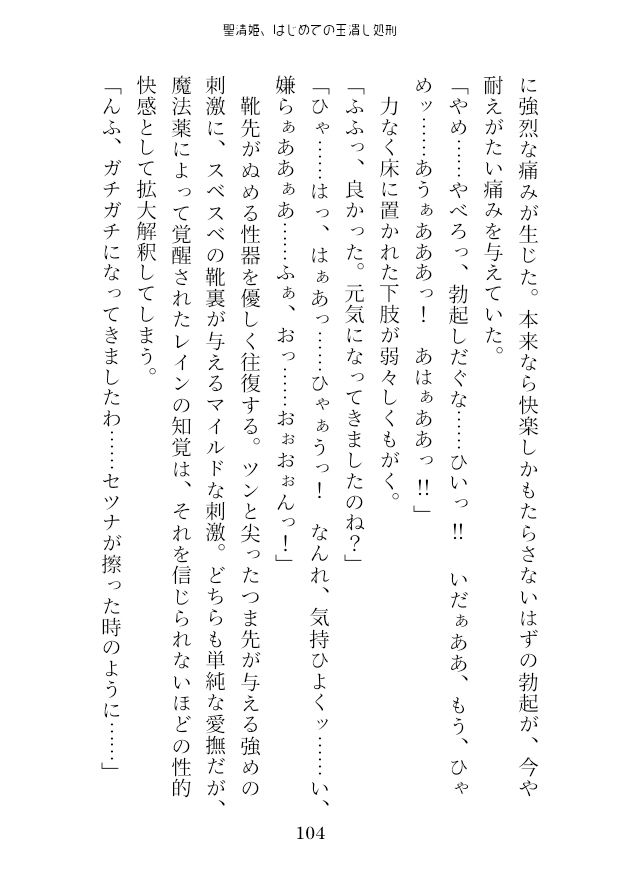 聖清姫、はじめての玉潰し処刑
に強烈な痛みが生じた。本来なら快楽しかもたらさないはずの勃起が、今や
耐えがたい痛みを与えていた。
「やめ……やべろっ、勃起しだぐな……ひいっ!! いだぁああ、もう、ひゃ
めッ……あうぁあああっ！ あはぁああっ!!」
力なく床に置かれた下肢が弱々しくもがく。
「ふふっ、良かった。元気になってきましたのね？」
「ひゃ……はっ、はぁあっ……ひゃぁうっ！ なんれ、気持ひよくッ……い、
嫌らぁああぁあ……ふぁ、おっ……おぉおぉんっ！」
靴先がぬめる性器を優しく往復する。ツンと尖ったつま先が与える強めの
刺激に、スベスベの靴裏が与えるマイルドな刺激。どちらも単純な愛撫だが、
魔法薬によって覚醒されたレインの知覚は、それを信じられないほどの性的
快感として拡大解釈してしまう。
「んふ、ガチガチになってきましたわ……セツナが擦った時のように……」
104